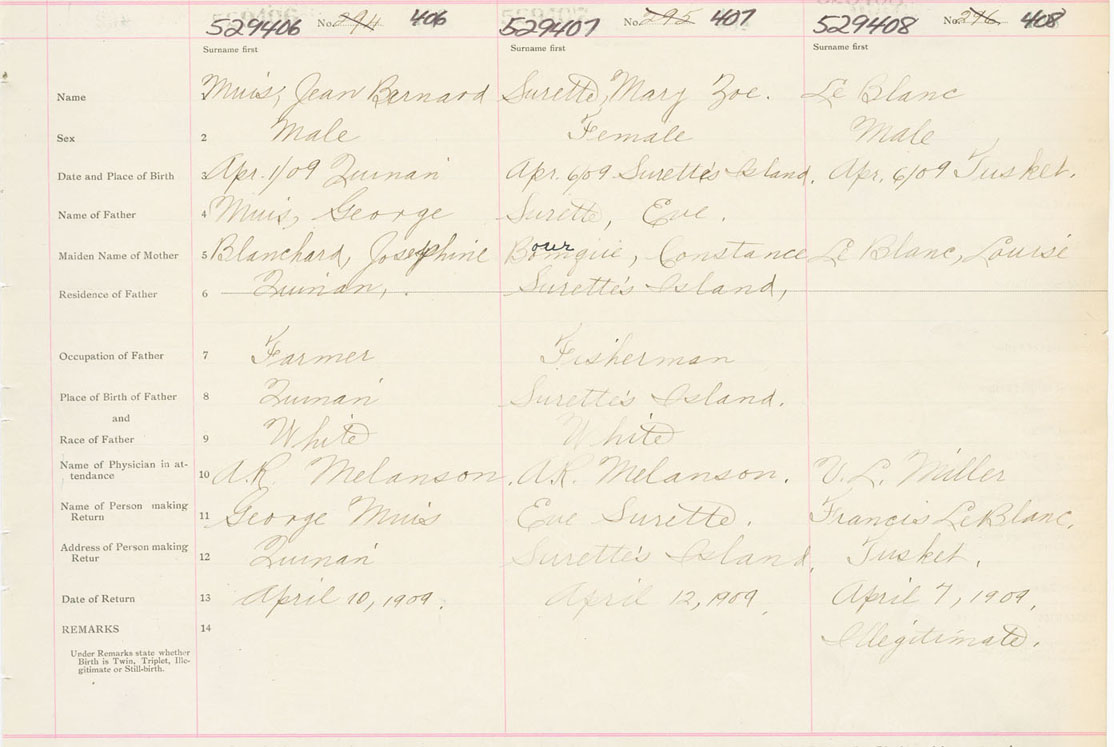 529406 No. 294 406 529407 No. 295 407 529408 No. 296 408
Surname first Surname first Surname first
Name 1 Muis, Jean Bernard Surette, Mary Zoe. Le Blanc
Sex 2 Male Female Male
Date and Place of Birth 3 Apr. 1/09 Quinan Apr. 6/09 Surette's Island. Apr. 6/09 Tusket.
Name of Father 4 Muis, George Surette, Eve.
Maiden Name of Mother 5 Blanchard, Josephine Bourque, Constance Le Blanc, Louise
Residence of Father 6 Quinan, Surette's Island,
Occupation of Father 7 Farmer Fisherman
Place of Birth of Father 8 Quinan Surette's Island.
and
Race of Father 9 White White
Name of Physician in at-
tendance 10 A.R. Melanson. A.R. Melanson. V. L. Miller
Name of Person making
Return 11 George Muis Eve Surette. Francis LeBlanc.
Address of Person making
Retur 12 Quinan Surette's Island, Tusket.
Date of Return 13 April 10, 1909. April 12, 1909. April 7, 1909.
REMARKS 14 Illegitimate.
Under Remarks state whether
Birth is Twin, Triplet, Ille-
gitimate or Still-birth.